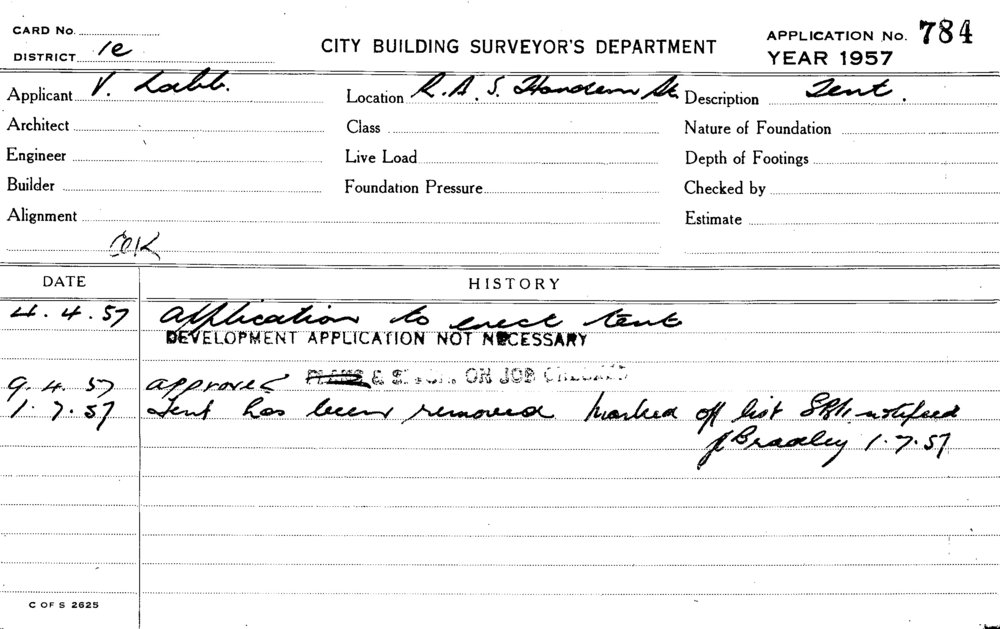 CARD No.
DISTRICT 1e
CITY BUILDING SURVEYOR'S DEPARTMENT
APPLICATION No. 784
YEAR 1957
Applicant V. Labb. Location R. A. S. St. Description Tent.
Architect Class Nature of Foundation
Engineer Live Load Depth of Footings
Builder Foundation Pressure Checked by
Alignment Estimate
OK
DATE HISTORY
4. 4. 57 Application to erect tent
DEVELOPMENT APPLICATION NOT NECESSARY
9. 4. 57 approved PLANS & ON JOB
1. 7. 57 Tent has been removed marked off list notified
J Bradley 1. 7. 57
C OF S 2625